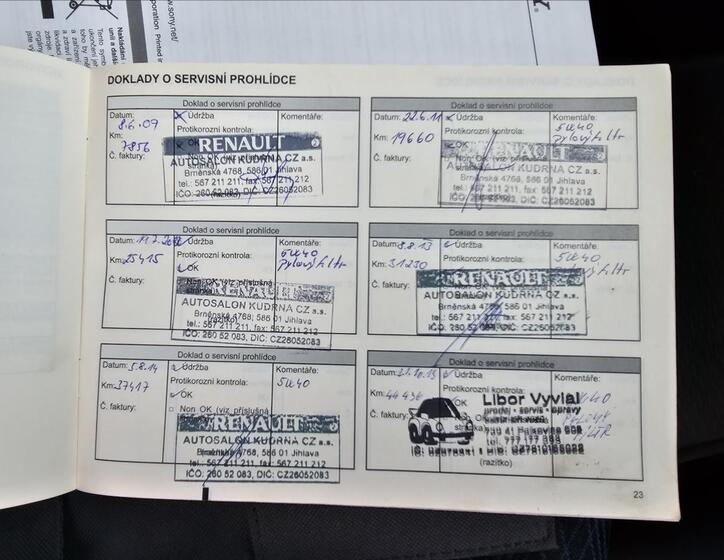 www.sony.net/
orporation Printed in
DOKLADY O SERVISNÍ PROHLÍDCE
Doklad o servisní prohlídce
Datum: 8.6.09
Údržba
Komentáře:
Km: 7856
Protikorozní kontrola:
OK
Č. faktury:
Non OK (viz příslušná stránka)
RENAULT
AUTOSALON KUDRNA CZ a.s.
Brněnská 4768, 586 01 Jihlava
tel.: 567 211 211, fax: 567 211 212
IČO: 260 52 083, DIČ: CZ26052083
(razítko)
Doklad o servisní prohlídce
Datum: 22.6.11
Údržba
Komentáře:
5W40
Pylový filtr
Km: 19660
Protikorozní kontrola:
OK
Č. faktury:
Non OK (viz příslušná stránka)
RENAULT
AUTOSALON KUDRNA CZ a.s.
Brněnská 4768, 586 01 Jihlava
tel.: 567 211 211, fax: 567 211 212
IČO: 260 52 083, DIČ: CZ26052083
Doklad o servisní prohlídce
Datum: 11.7.2012
Údržba
Komentáře:
5W40
Pylový filtr
Km: 25415
Protikorozní kontrola:
OK
Č. faktury:
Non OK (viz příslušná stránka)
RENAULT
AUTOSALON KUDRNA CZ a.s.
Brněnská 4768, 586 01 Jihlava
(razítko)
tel.: 567 211 211, fax: 567 211 212
IČO: 260 52 083, DIČ: CZ26052083
Doklad o servisní prohlídce
Datum: 8.8.13
Údržba
Komentáře:
5W40
Pylový filtr
Km: 31230
Protikorozní kontrola:
OK
Č. faktury:
RENAULT
AUTOSALON KUDRNA CZ a.s.
Brněnská 4768, 586 01 Jihlava
tel.: 567 211 211, fax: 567 211 212
IČO: 260 52 083, DIČ: CZ26052083
Doklad o servisní prohlídce
Datum: 5.8.14
Údržba
Komentáře:
5W40
Km: 37417
Protikorozní kontrola:
OK
Č. faktury:
Non OK (viz příslušná
RENAULT
AUTOSALON KUDRNA CZ a.s.
Brněnská 4768, 586 01 Jihlava
tel.: 567 211 211, fax: 567 211 212
IČO: 260 52 083, DIČ: CZ26052083
Doklad o servisní prohlídce
Datum:
Údržba
Komentáře:
Km:
Protikorozní kontrola:
Č. faktury:
Libor Vyvial
prodej - servis - opravy
(razítko)
23